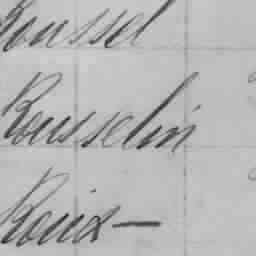 Roussel
Rousselin
Roux —